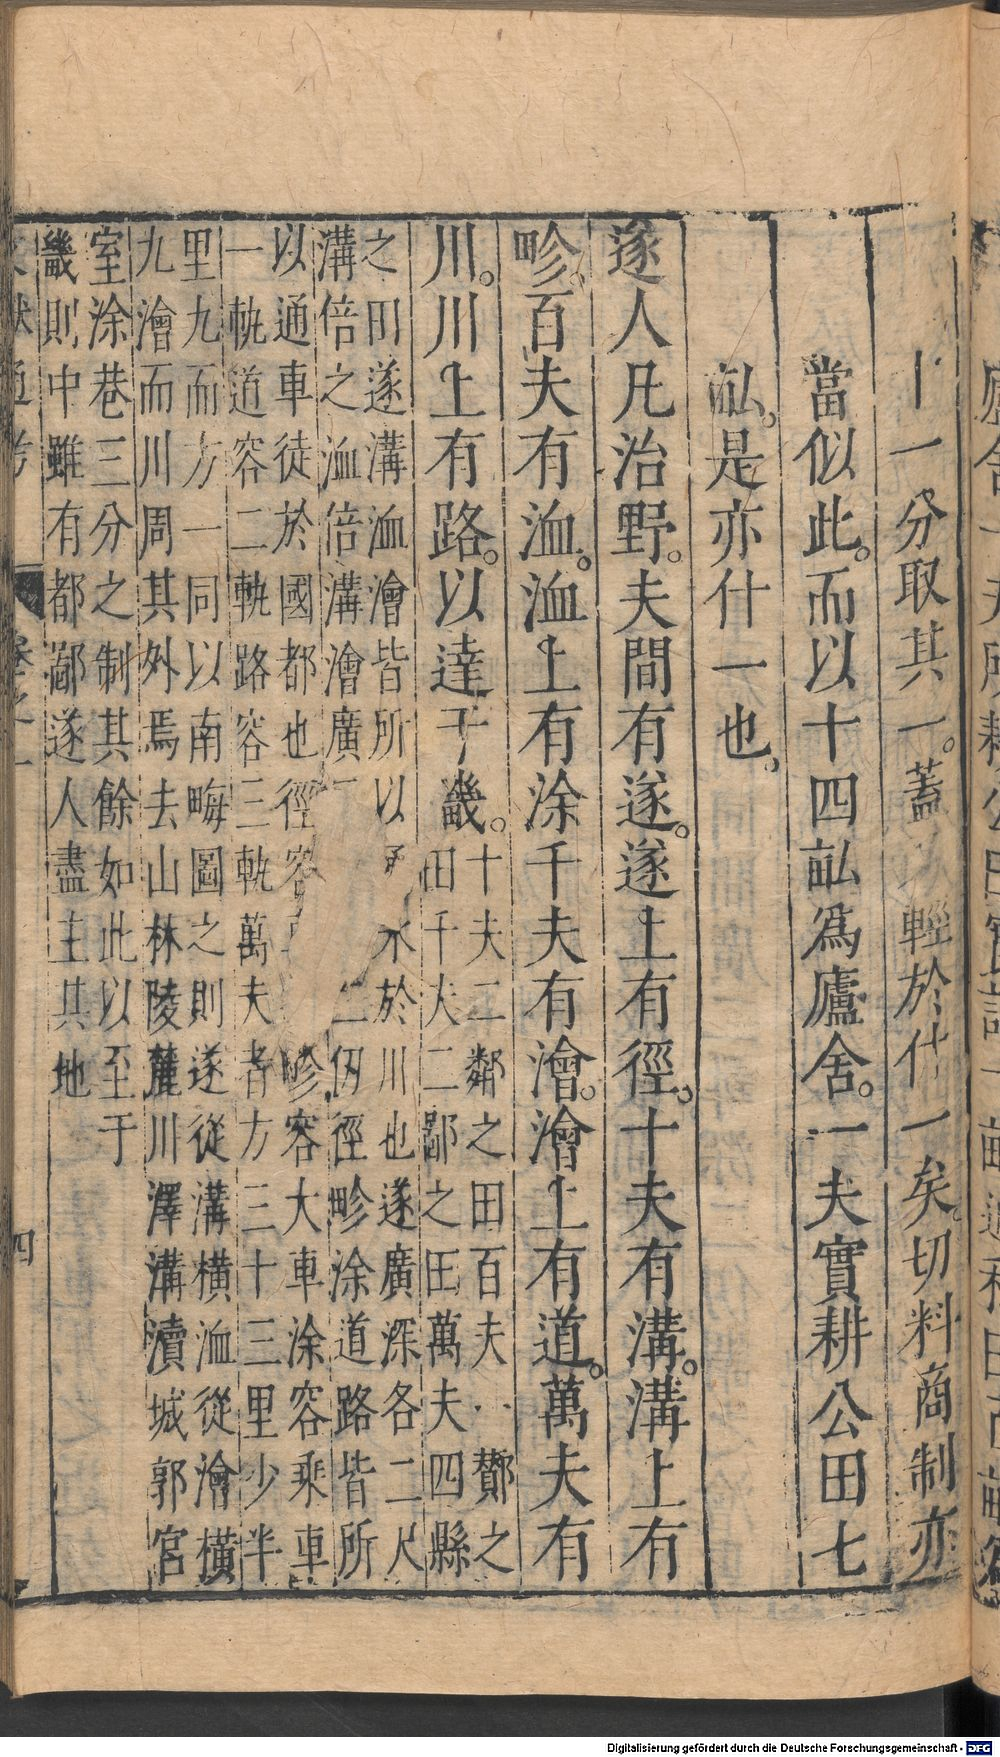 十一分取其一。蓋又輕於什一矣。切料商制亦
當似此。而以十四畝爲廬舍。一夫實耕公田七
畝。是亦什一也。
遂人凡治野。夫間有遂。遂上有徑。十夫有溝。溝上有
畛。百夫有洫。洫上有涂千夫有澮。澮上有道。萬夫有
川。川上有路。以達于畿。
十夫二鄰之田百夫 酇之
田千夫二鄙之田萬夫四縣
之田遂溝洫澮皆所以 水於川也遂廣深各二尺
溝倍之洫倍溝澮廣 二仞徑畛涂道路皆所
以通車徒於國都也徑容 畛容大車涂容乘車
一軌道容二軌路容三軌萬夫者方三十三里少半
里九而方一同以南畮圖之則遂從溝橫洫從澮橫
九澮而川周其外焉去山林陵麓川澤溝瀆城郭宮
室涂巷三分之制其餘如此以至于
畿則中雖有都鄙遂人盡主其地
四
Digitalisierung gefördert durch die Deutsche Forschungsgemeinschaft - DFG